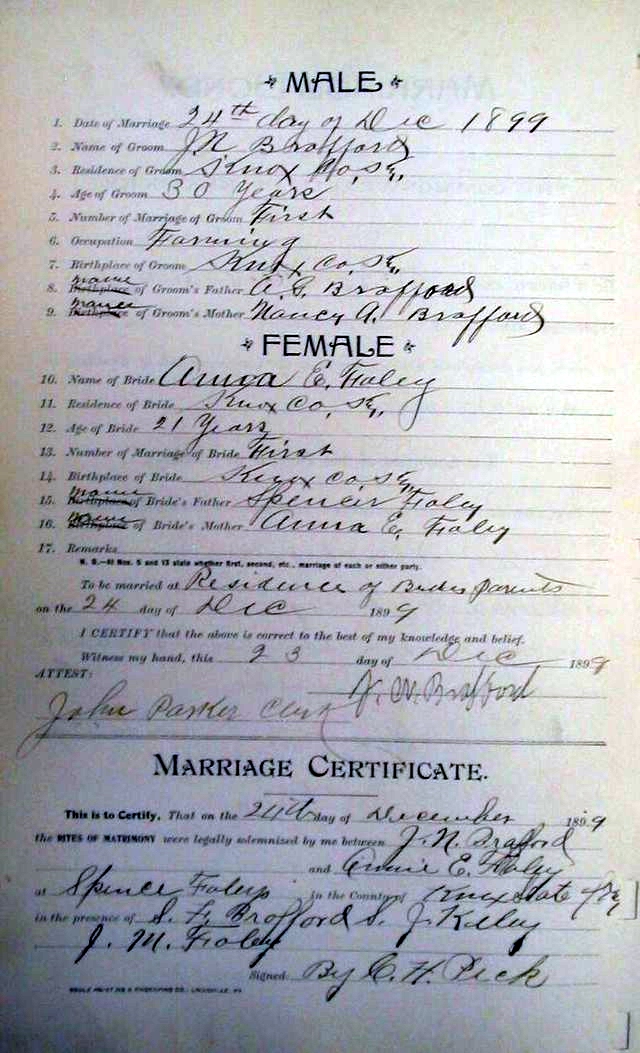 MALE
1. Date of Marriage 24th day of Dec 1899
2. Name of Groom J N Brafford
3. Residence of Groom Knox Co, Ky,
4. Age of Groom 30 Years
5. Number of Marriage of Groom First
6. Occupation Farming
7. Birthplace of Groom Knox Co, Ky,
8. Birthplace name of Groom's Father A. G. Brafford
9. Birthplace name of Groom's Mother Nancy A. Brafford
FEMALE
10. Name of Bride Anna E. Foley
11. Residence of Bride Knox Co, Ky,
12. Age of Bride 21 Years
13. Number of Marriage of Bride First
14. Birthplace of Bride Knox Co, Ky,
15. Birthplace name of Bride's Father Spencer Foley
16. Birthplace name of Bride's Mother Anna E. Foley
17. Remarks
N. B.—At Nos. 5 and 13 state whether first, second, etc., marriage of each or either party.
To be married at Residence of Brides parents
on the 24 day of Dec 1899
I CERTIFY that the above is correct to the best of my knowledge and belief.
Witness my hand, this 23 day of Dec, 1899
ATTEST: J. N. Brafford
John Parker Clerk
MARRIAGE CERTIFICATE.
This is to Certify, That on the 24th day of December 1899
the RITES OF MATRIMONY were legally solemnized by me between J. N. Brafford
and Annie E. Foley
at Spence Foleys in the County of Knox state of Ky
in the presence of S. F. Brofford S. J. Kelley
J. M. Foley
Signed: By C. H. Peck